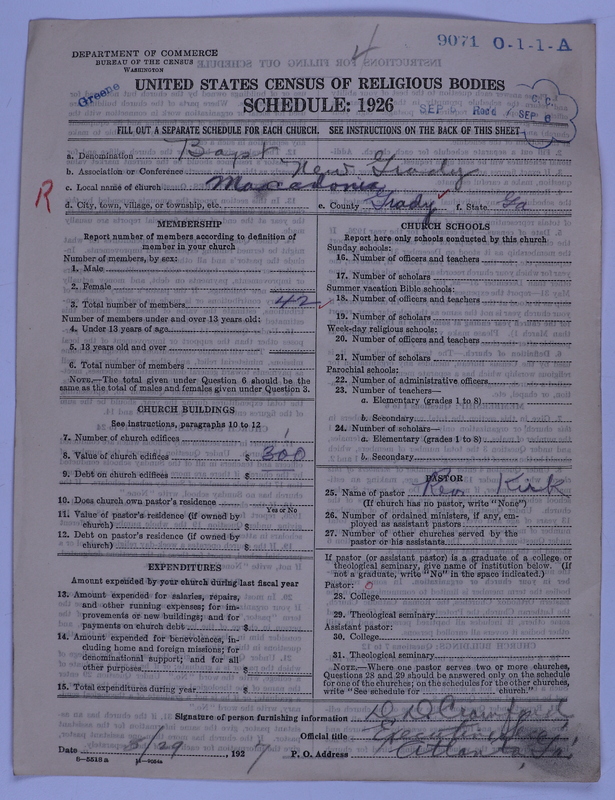 9071 0-1-1-A
4
DEPARTMENT OF COMMERCE
BUREAU OF THE CENSUS
WASHINGTON
Greene
UNITED STATES CENSUS OF RELIGIOUS BODIES
SCHEDULE: 1926
SEP 6 Rec'd
C. C.
SEP 6
FILL OUT A SEPARATE SCHEDULE FOR EACH CHURCH. SEE INSTRUCTIONS ON THE BACK OF THIS SHEET
a. Denomination Bapt
b. Association or Conference New Grady
c. Local name of church Macadonia
R
d. City, town, village, or township, etc. e. County Grady f. State Ga
MEMBERSHIP
Report number of members according to definition of
member in your church
Number of members, by sex:
1. Male
2. Female
3. Total number of members 42
Number of members under and over 13 years old:
4. Under 13 years of age
5. 13 years old and over
6. Total number of members
NOTE.—The total given under Question 6 should be the
same as the total of males and females given under Question 3.
CHURCH BUILDINGS
See instructions, paragraphs 10 to 12
7. Number of church edifices 1
8. Value of church edifices $ 300
9. Debt on church edifices $
10. Does church own pastor's residence
Yes or No
11. Value of pastor's residence (if owned by
church) $
12. Debt on pastor's residence (if owned by
church) $
EXPENDITURES
Amount expended by your church during last fiscal year
13. Amount expended for salaries, repairs,
and other running expenses; for im-
provements or new buildings; and for
payments on church debt $
14. Amount expended for benevolences, in-
cluding home and foreign missions; for
denominational support; and for all
other purposes $
15. Total expenditures during year $
CHURCH SCHOOLS
Report here only schools conducted by this church
Sunday schools:
16. Number of officers and teachers
17. Number of scholars
Summer vacation Bible schools:
18. Number of officers and teachers
19. Number of scholars
Week-day religious schools:
20. Number of officers and teachers
21. Number of scholars
Parochial schools:
22. Number of administrative officers
23. Number of teachers—
a. Elementary (grades 1 to 8)
b. Secondary
24. Number of scholars—
a. Elementary (grades 1 to 8)
b. Secondary
PASTOR
25. Name of pastor Rev Kirk
(If church has no pastor, write "None")
26. Number of ordained ministers, if any, em-
ployed as assistant pastors
27. Number of other churches served by the
pastor or his assistants
If pastor (or assistant pastor) is a graduate of a college or
theological seminary, give name of institution below. (If
not a graduate, write "No" in the space indicated.)
Pastor: 0
28. College
29. Theological seminary
Assistant pastor:
30. College
31. Theological seminary
NOTE.—Where one pastor serves two or more churches,
Questions 28 and 29 should be answered only on the schedule
for one of the churches; on the schedules for the other churches,
write "See schedule for church."
Signature of person furnishing information D D Crawford
Official title
Date 3/29, 1927 P. O. Address Atlanta, Ga
8—5518 a